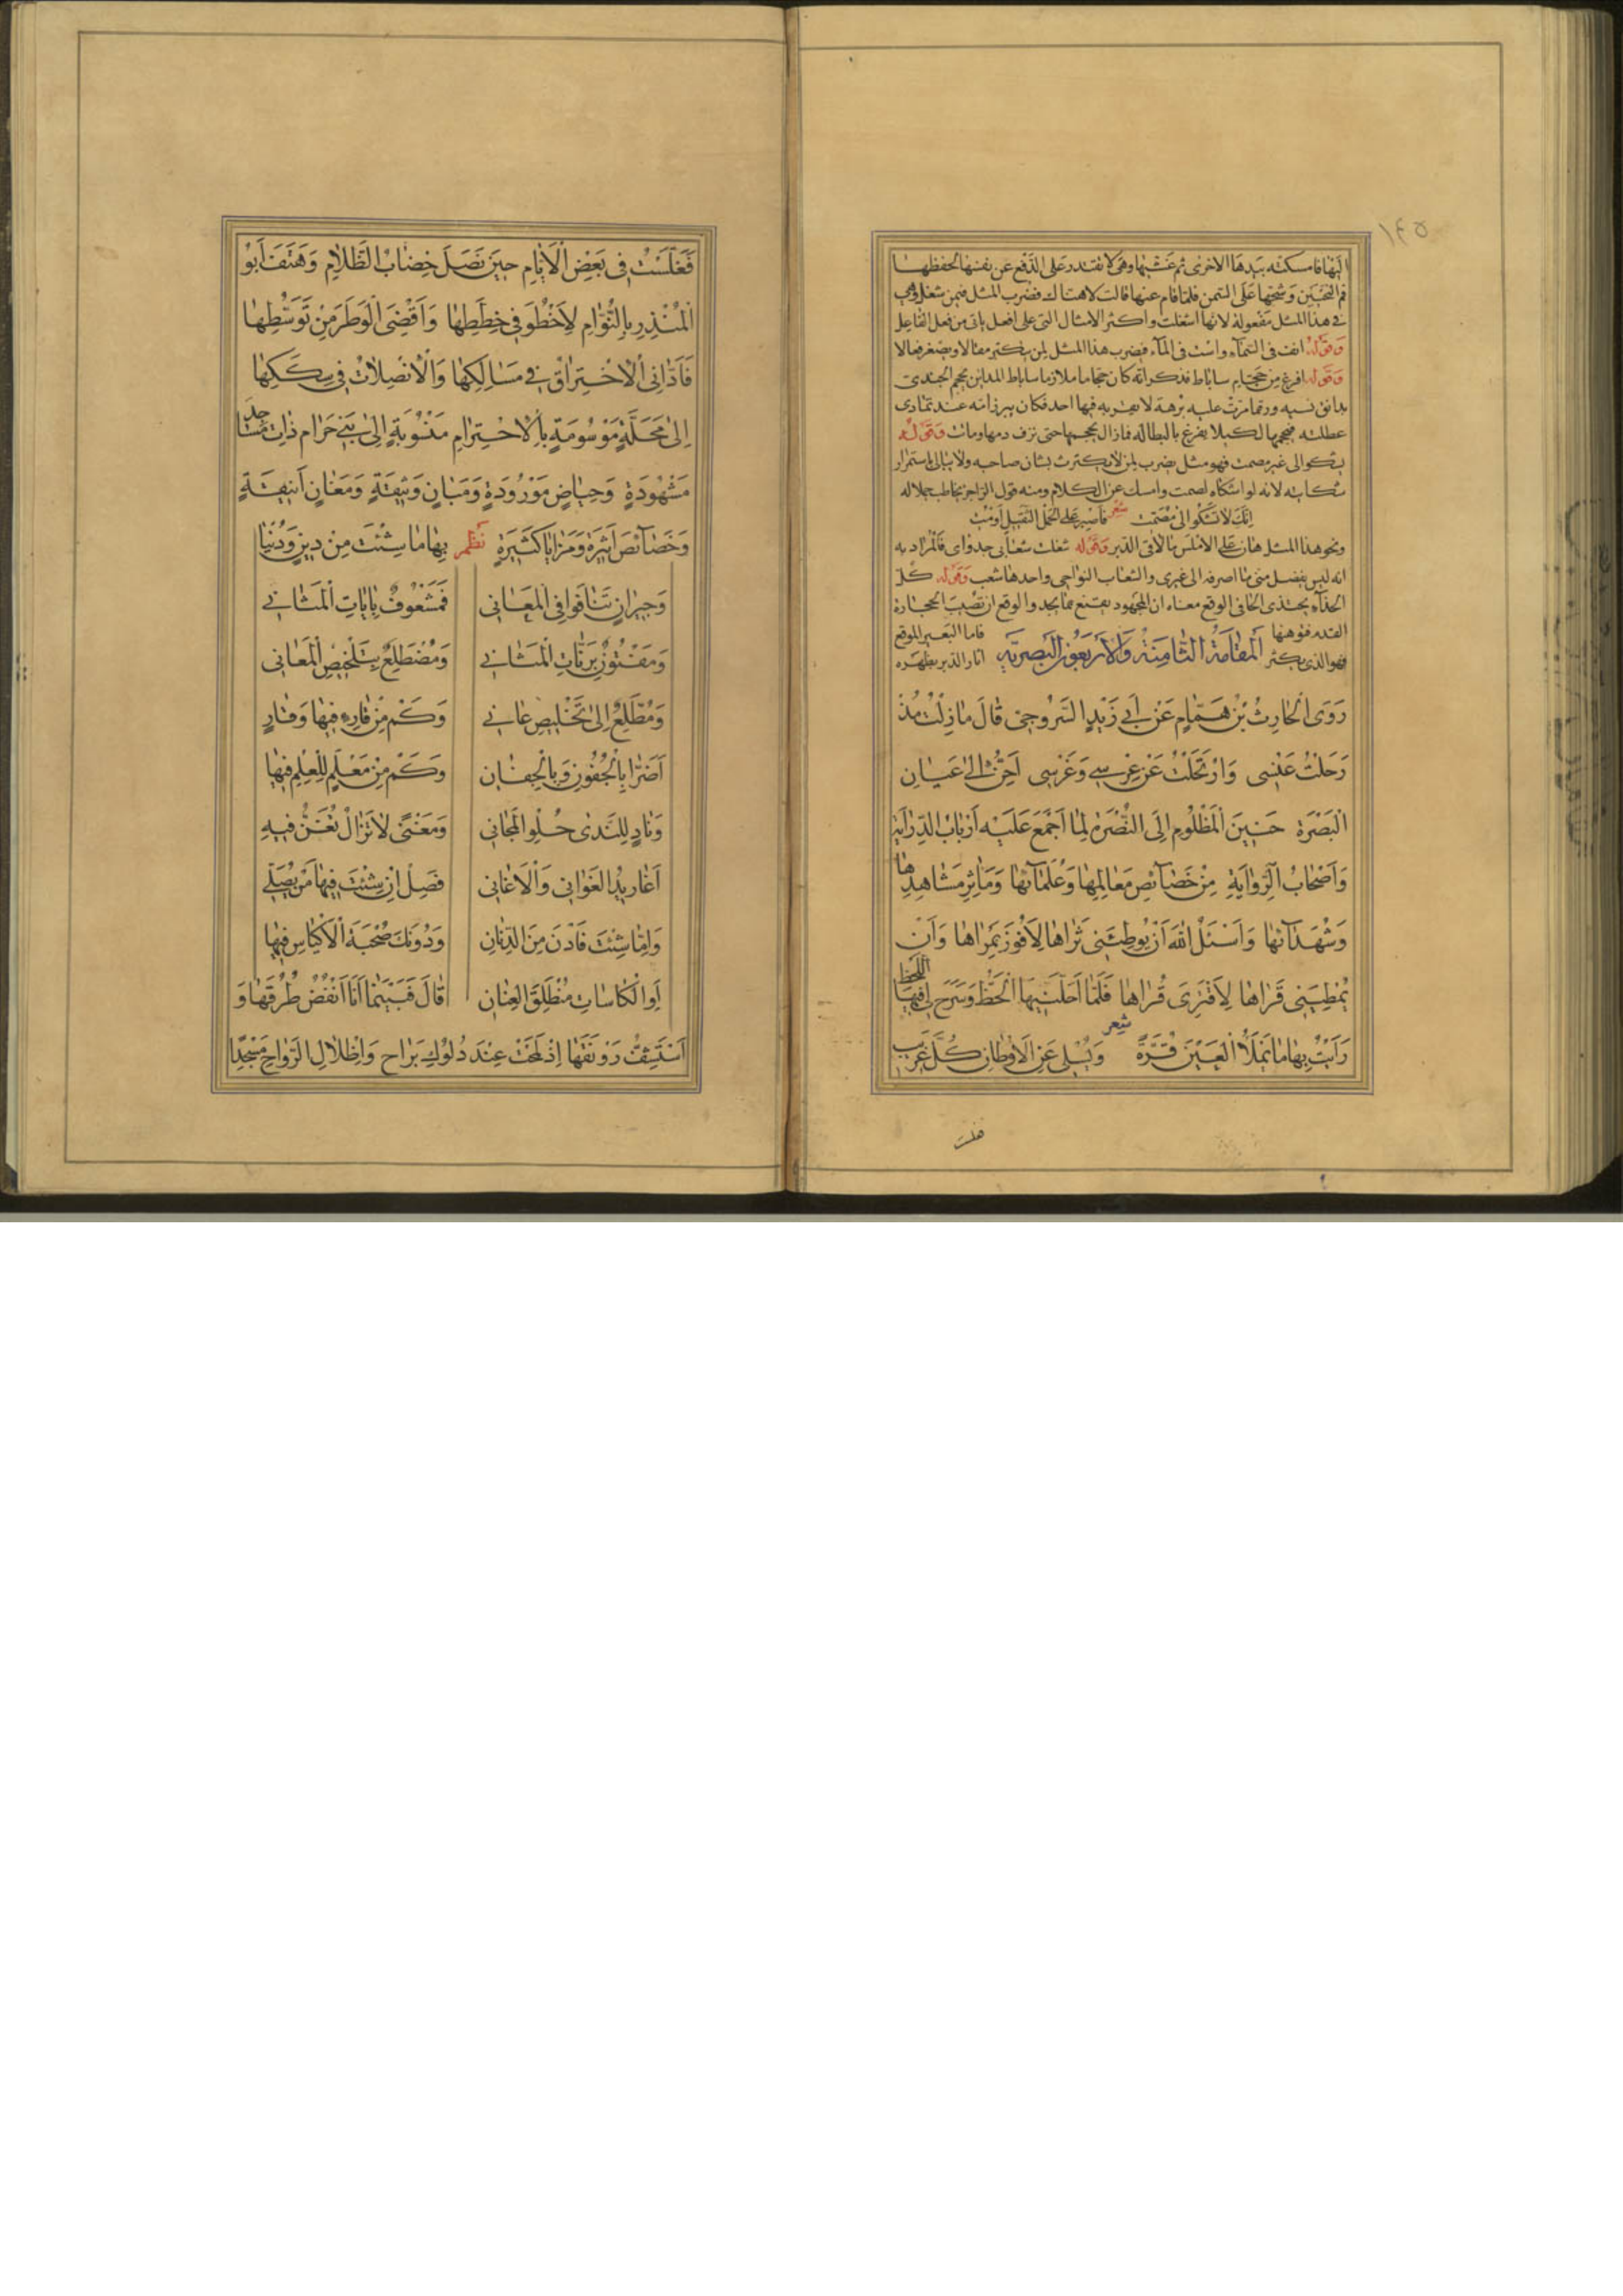 ١٤٥
اليها فامسكته بيدها الاخرى ثم غشيها وهى لا تقتدر على الدفع عن نفسها لحفظها
فم النحيين وشحها على السمن فلما قام عنها قالت لاهناك فضرب المثل فيمن شغل وهى
فى هذا المثل مفعولة لانها اشغلت واكثر الامثال التى على افعل ياتى من فعل الفاعل
وقوله انف فى السماء واست فى الماء فضرب هذا المثل لمن يكثر مقالا ويصغر فعالا
وقوله افرغ من حجام ساباط فذكر انه كان حجاما ملازما ساباط المداين يحجم الجندى
بدانق نسيه وربما مرت عليه برهة لا يقربه فيها احد فكان يبرز امه عند تمادى
عطلته فيحجمها لكيلا يقرع بالبطالة فمازال يحجمها حتى نزف دمها وماتت وقوله
يشكو الى غير مصمت فهو مثل يضرب لمن لا يكترث بشان صاحبه ولا يبالى باستمرار
شكايته لانه لو اشكاه لصمت وامسك عن الكلام ومنه قول الراجز يخاطب جملا له
انك لا تشكو الى مصمت شعر فاصبر على الحمل الثقيل او مت
ونحو هذا المثل هان على الاملس ما لاقى الدبر وقوله شغلت شعابى جدواى فالمراد به
انه ليس يفضل منى ما اصرفه الى غيرى والشعاب النواحى واحدها شعب وقوله كل
الحذاء يحتذى الحافى الوقع معناه ان المجهود يقتنع بما يجد والوقع ان تصيب الحجارة
القدم فتوهنها فاما البعير الموقع
فهو الذى يكثر المقامة الثامنة والاربعون البصرية اثار الدبر بظهره
رَوَى الحارِثُ بْنُ هَمّامٍ عَنْ أَبى زَيْدٍ السَّرُوجىّ قالَ ما زِلْتُ مُذْ
رَحَلْتُ عَنْسى وَارْتَحَلْتُ عَنْ عِرْسى وَغَرْسى اَحِنُّ الى عَيانِ
الْبَصْرَةِ حَنينَ الْمَظْلُومِ اِلَى النُّصْرَةِ لِما اَجْمَعَ عَلَيْهِ اَرْبابُ الدِّرايَةِ
وَاَصْحابُ الرِّوايَةِ مِنْ خَصآئِصِ مَعالِمِها وَعُلَمآئها وَمَاثِرِ مَشاهِدِها
وَشُهَدآئها وَاَسْئَلُ اللهَ اَنْ يُوطِئَنى ثَراها لِاَفُوزَ بِمَرْاها وَاَنْ
يُمْطِيَنى قَراها لِاَقْتَرِىَ قُراها فَلَمّا اَحَلَّنيها الْحَظُّ وَسَرَحَ لى فيها اللّحظ
رَاَيْتُ بِها ما يَمْلَأُ الْعَيْنَ قُرَّةً شعر وَيُسْلى عَنِ الْاَوْطانِ كُلَّ غَريب
فغلست
فَغَلَّسْتُ فى بَعْضِ الْاَيّامِ حينَ نَصَلَ خِضابُ الظَّلامِ وَهَتَفَ اَبُو
الْمُنْذِرِ بِالنُّوّامِ لِاَخْطُوَ فى خِطَطِها وَاَقْضِىَ الْوَطَرَ مِنْ تَوَسُّطِها
فَاَدّانِى الْاِخْتِراقُ فى مَسالِكِها وَالْاِنْصِلاتُ فى سِكَكِها
اِلى مَحَلَّةٍ مَوْسُومَةٍ بِالْاِحْتِرامِ مَنْسُوبَةٍ اِلى بَنى حَرام ذاتِ مَساجِدَ
مَشْهُودَةٍ وَحِياضٍ مَوْرُودَةٍ وَمَبانٍ وَثيقَةٍ وَمَغانٍ اَنيقَةٍ
وَخَصآئِصَ اَثيرَةٍ وَمَزايا كَثيرَةٍ نظم بِها ما شِئْتَ مِنْ دينٍ وَدُنْيا
وَجيرانٍ تَنافَوا فِى الْمَعانى فَمَشْغُوفٌ بِاياتِ الْمَثانى
وَمَفْتُونٌ بِرَنّاتِ الْمَثانى وَمُضْطَلِعٌ بِتَلْخيصِ الْمَعانى
وَمُطَّلِعٌ اِلى تَخْليصِ عانى وَكَمْ مِنْ قارِءٍ فيها وَقارٍ
اَضَرّا بِالْجُفُونِ وَبِالْجِفان وَكَمْ مِنْ مَعْلَمٍ لِلْعِلْمِ فيها
وَنادٍ لِلنَّدى حُلْوِ الْمَجانى وَمَغْنًى لا تَزالُ تُغَنُّ فيهِ
اَغاريدُ الْغَوانى وَالْاَغانى فَصِلْ اِنْ شِئْتَ فيها مَنْ يُصَلّى
وَاِمّا شِئْتَ فَادْنُ مِنَ الدِّنانِ وَدُونَكَ صُحْبَةَ الْاَكْياسِ فيها
اَوِ الْكاساتِ مُنْطَلِقَ الْعِنانِ قالَ فَبَيْنَما اَنَا اَنْفُضُ طُرُقَها وَ
اَسْتَشِفُّ رَوْنَقَها اِذْ لَمَحْتُ عِنْدَ دُلُوكِ بَراحِ وَاِظْلالِ الرَّواحِ مَسْجِدًا